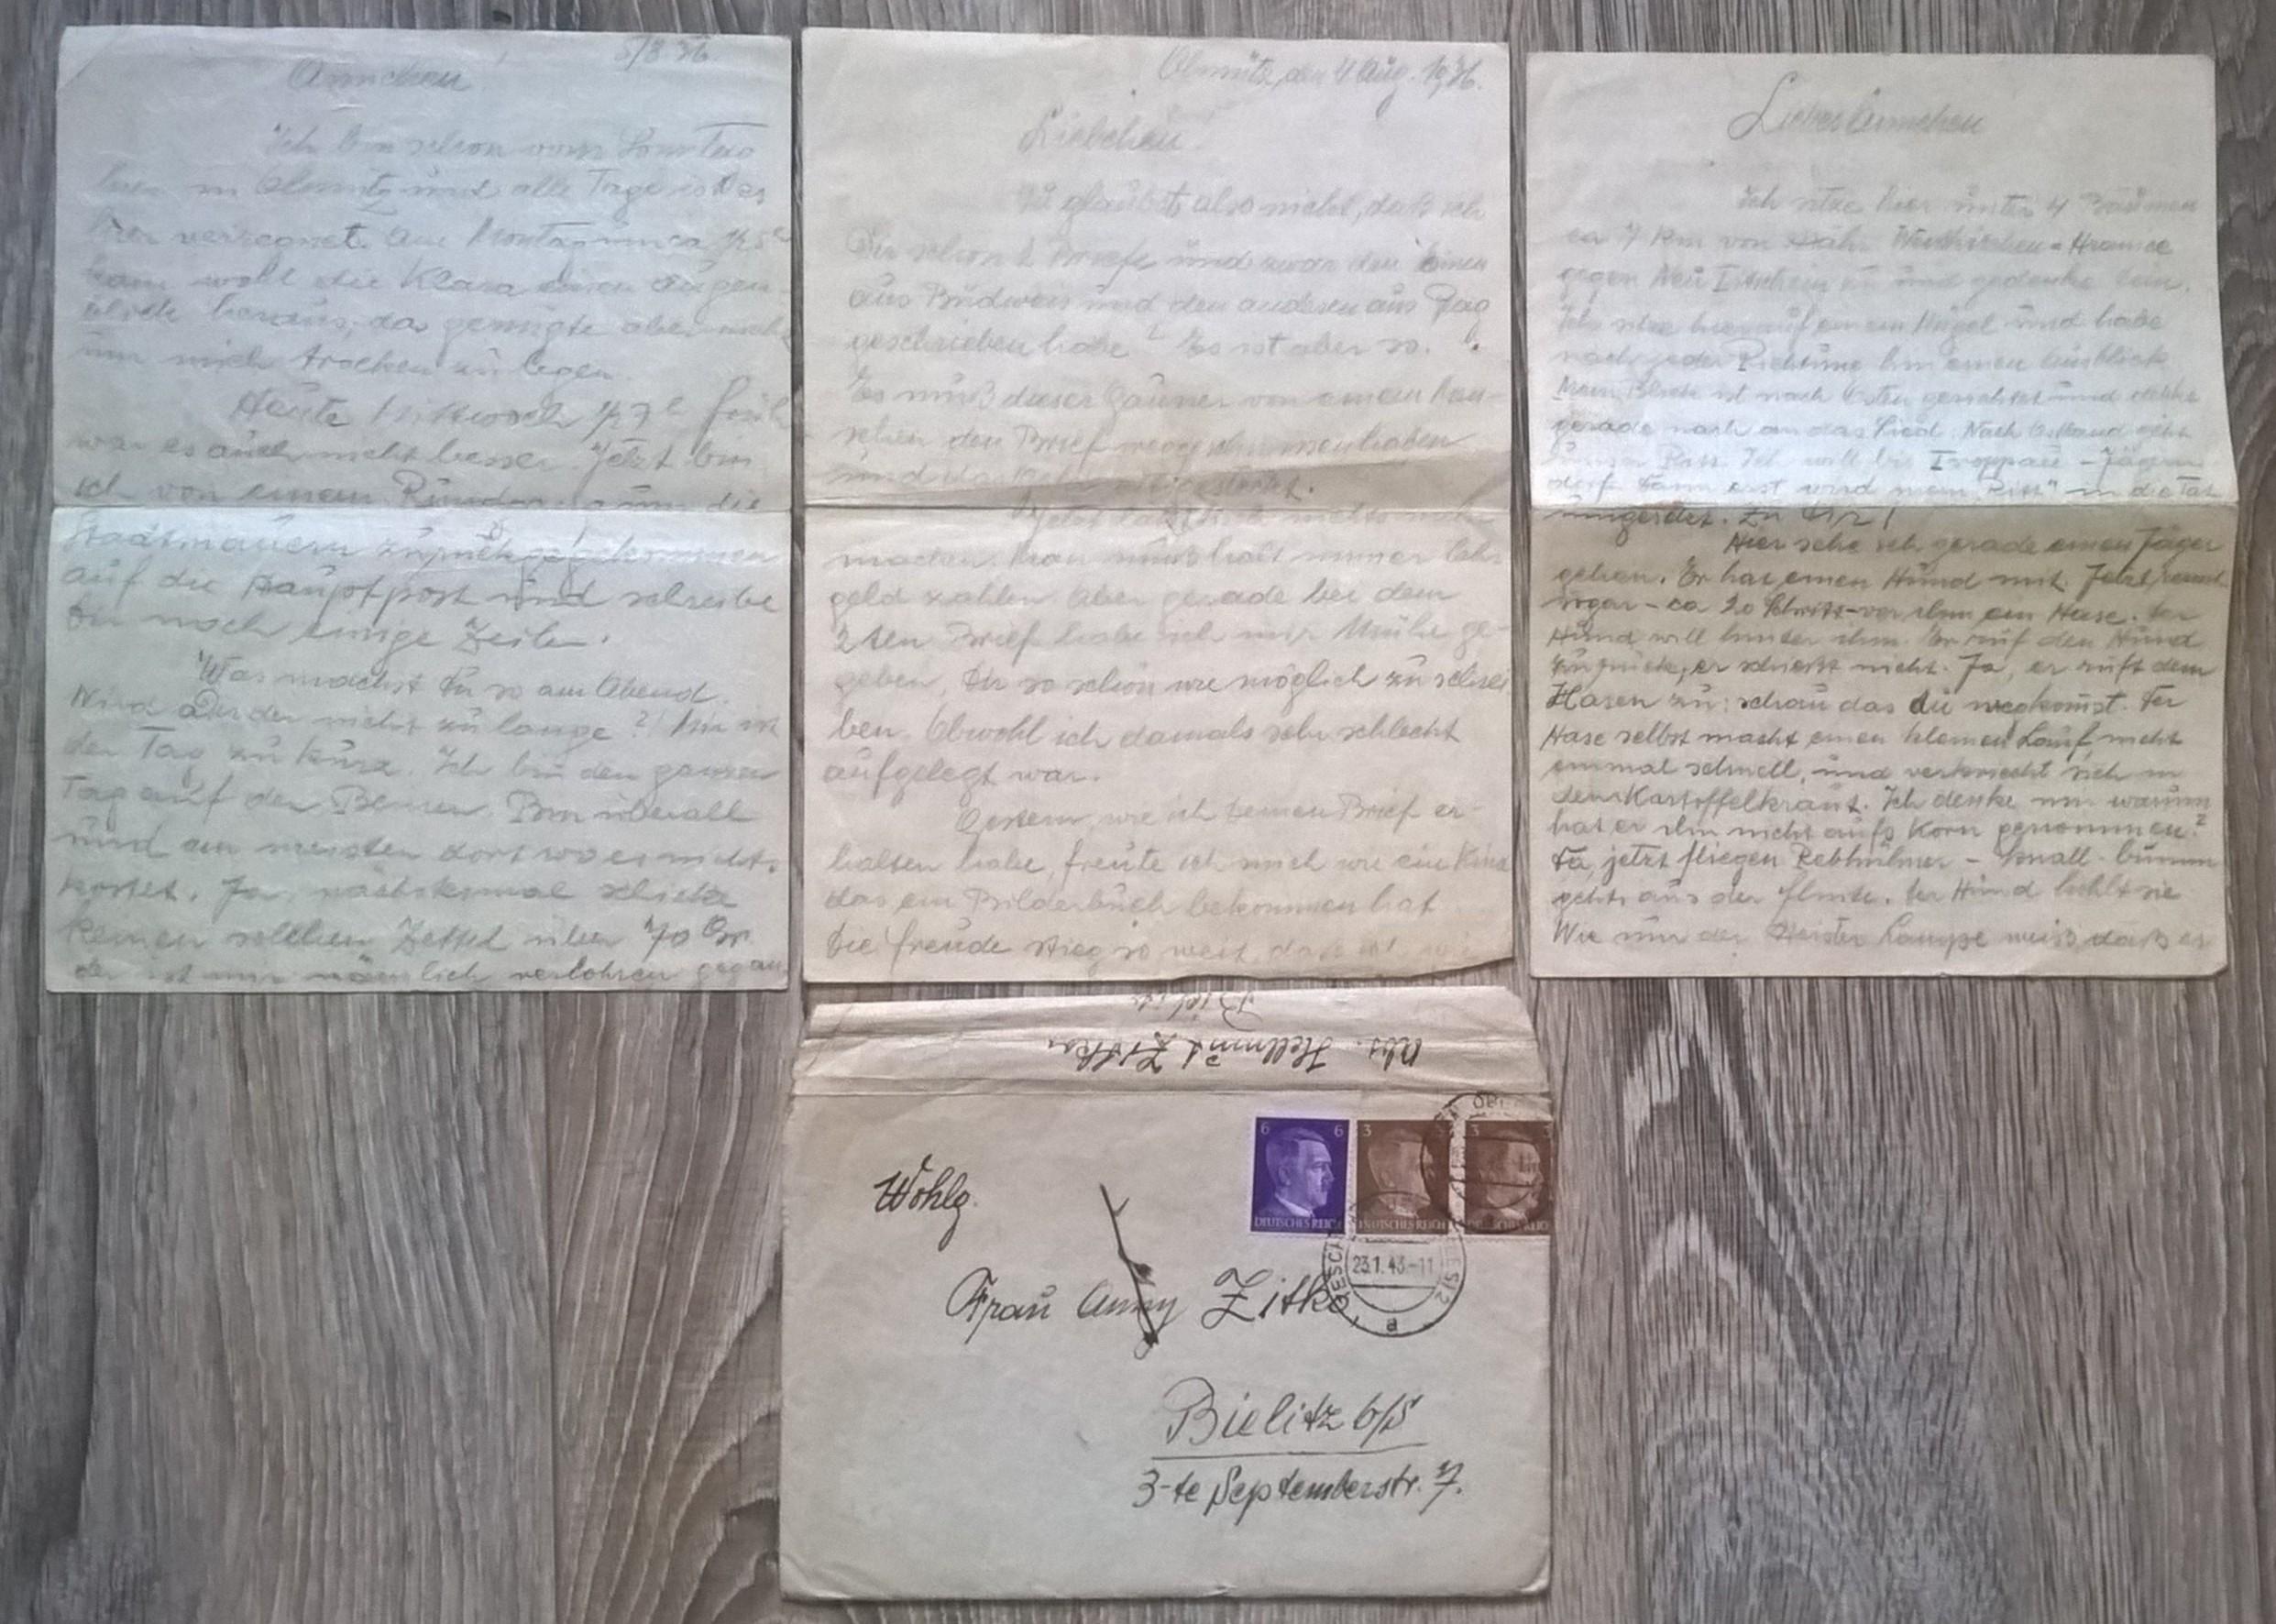 5/8.36.
Annchen
Ich bin schon vom Sonntag
hier in Olmütz und alle Tage ist es
hier verregnet. Am Montag um ca 1/2 5h
kam wohl die Klara einen Augen-
blick heraus, das genügte aber nicht
um mich trocken zu legen.
Heute Mittwoch 1/2 7h früh
war es auch nicht besser. Jetzt bin
ich von einem um die
Stadtmauern zurückgekommen
auf die Hauptpost und schreibe
Dir noch einige Zeilen.
Was machst Du so am Abend.
Wird der nicht zu lange? Mir ist
der Tag zu kurz. Ich bin den ganzen
Tag auf den Beinen. Bin überall
und am meisten dort wo es nichts
kostet. Ja, nächstesmal schicke
keinen solchen Zettel über 70
der ist mir nämlich verlohren gegan
Olmütz, den 4 Aug. 1936.
Liebchen
Du glaubst also nicht, daß ich
Dir schon 2 Briefe und zwar den einen
aus Budweis und den anderen aus
geschrieben habe? Es ist aber so.
Es muß dieser Gauner von einem
den Brief weggenommen haben
und das Geld eingesteckt.
Jetzt läßt sich nichts mehr
machen. Man muß halt immer Lehr
geld zahlen. Aber gerade bei dem
2ten Brief habe ich mir Mühe ge-
geben, Dir so schön wie möglich zu schrei
ben. Obwohl ich damals sehr schlecht
aufgelegt war.
Gestern, wie ich Deinen Brief er-
halten habe, freute ich mich wie ein Kind
das ein Bilderbuch bekommen hat
Die Freude stieg so weit, daß ich
Liebes Annchen
Ich sitze hier unter 4 Bäumen
ca 7 km von Mähr Weißkirchen = Hranice
gegen Neu Titschein zu und gedenke Dein.
Ich sitze hier auf einem Hügel und habe
nach jeder Richtung hin einen Ausblick
Mein Blick ist nach Osten gerichtet und denke
gerade noch an das Lied. Nach Ostland geht
unser Ritt. Ich will bis Troppau - Jägern
dorf dann erst wird mein "Ritt" in die Tat
umgesetzt. Zu Dir!
Hier sehe ich gerade einen Jäger
gehen. Er hat einen Hund mit. Jetzt
sogar - ca 20 Schritt - vor ihm ein Hase. Der
Hund will hinter ihm. Er ruf den Hund
zurück, er schießt nicht. Ja, er ruft dem
Hasen zu: schau das du wegkomst. Der
Hase selbst macht einen kleinen Lauf nicht
einmal schnell, und verkriecht sich in
den Kartoffelkraut. Ich denke mir warum
hat er ihn nicht aufs Korn genommen?
Da, jetzt fliegen Rebhühner - Knall - bumm
gehts aus der Flinte. Der Hund hohlt sie
Wie nur der Meister Lampe weiß daß es
Abs. Hellmut Zitko
Bielitz
6 6
DEUTSCHES REICH
3
DEUTSCHES REICH
3 3
23.1.43.-11
a
Wohlg.
Frau Anny Zitko,
Bielitz O/S
3-te Septemberstr. 7.